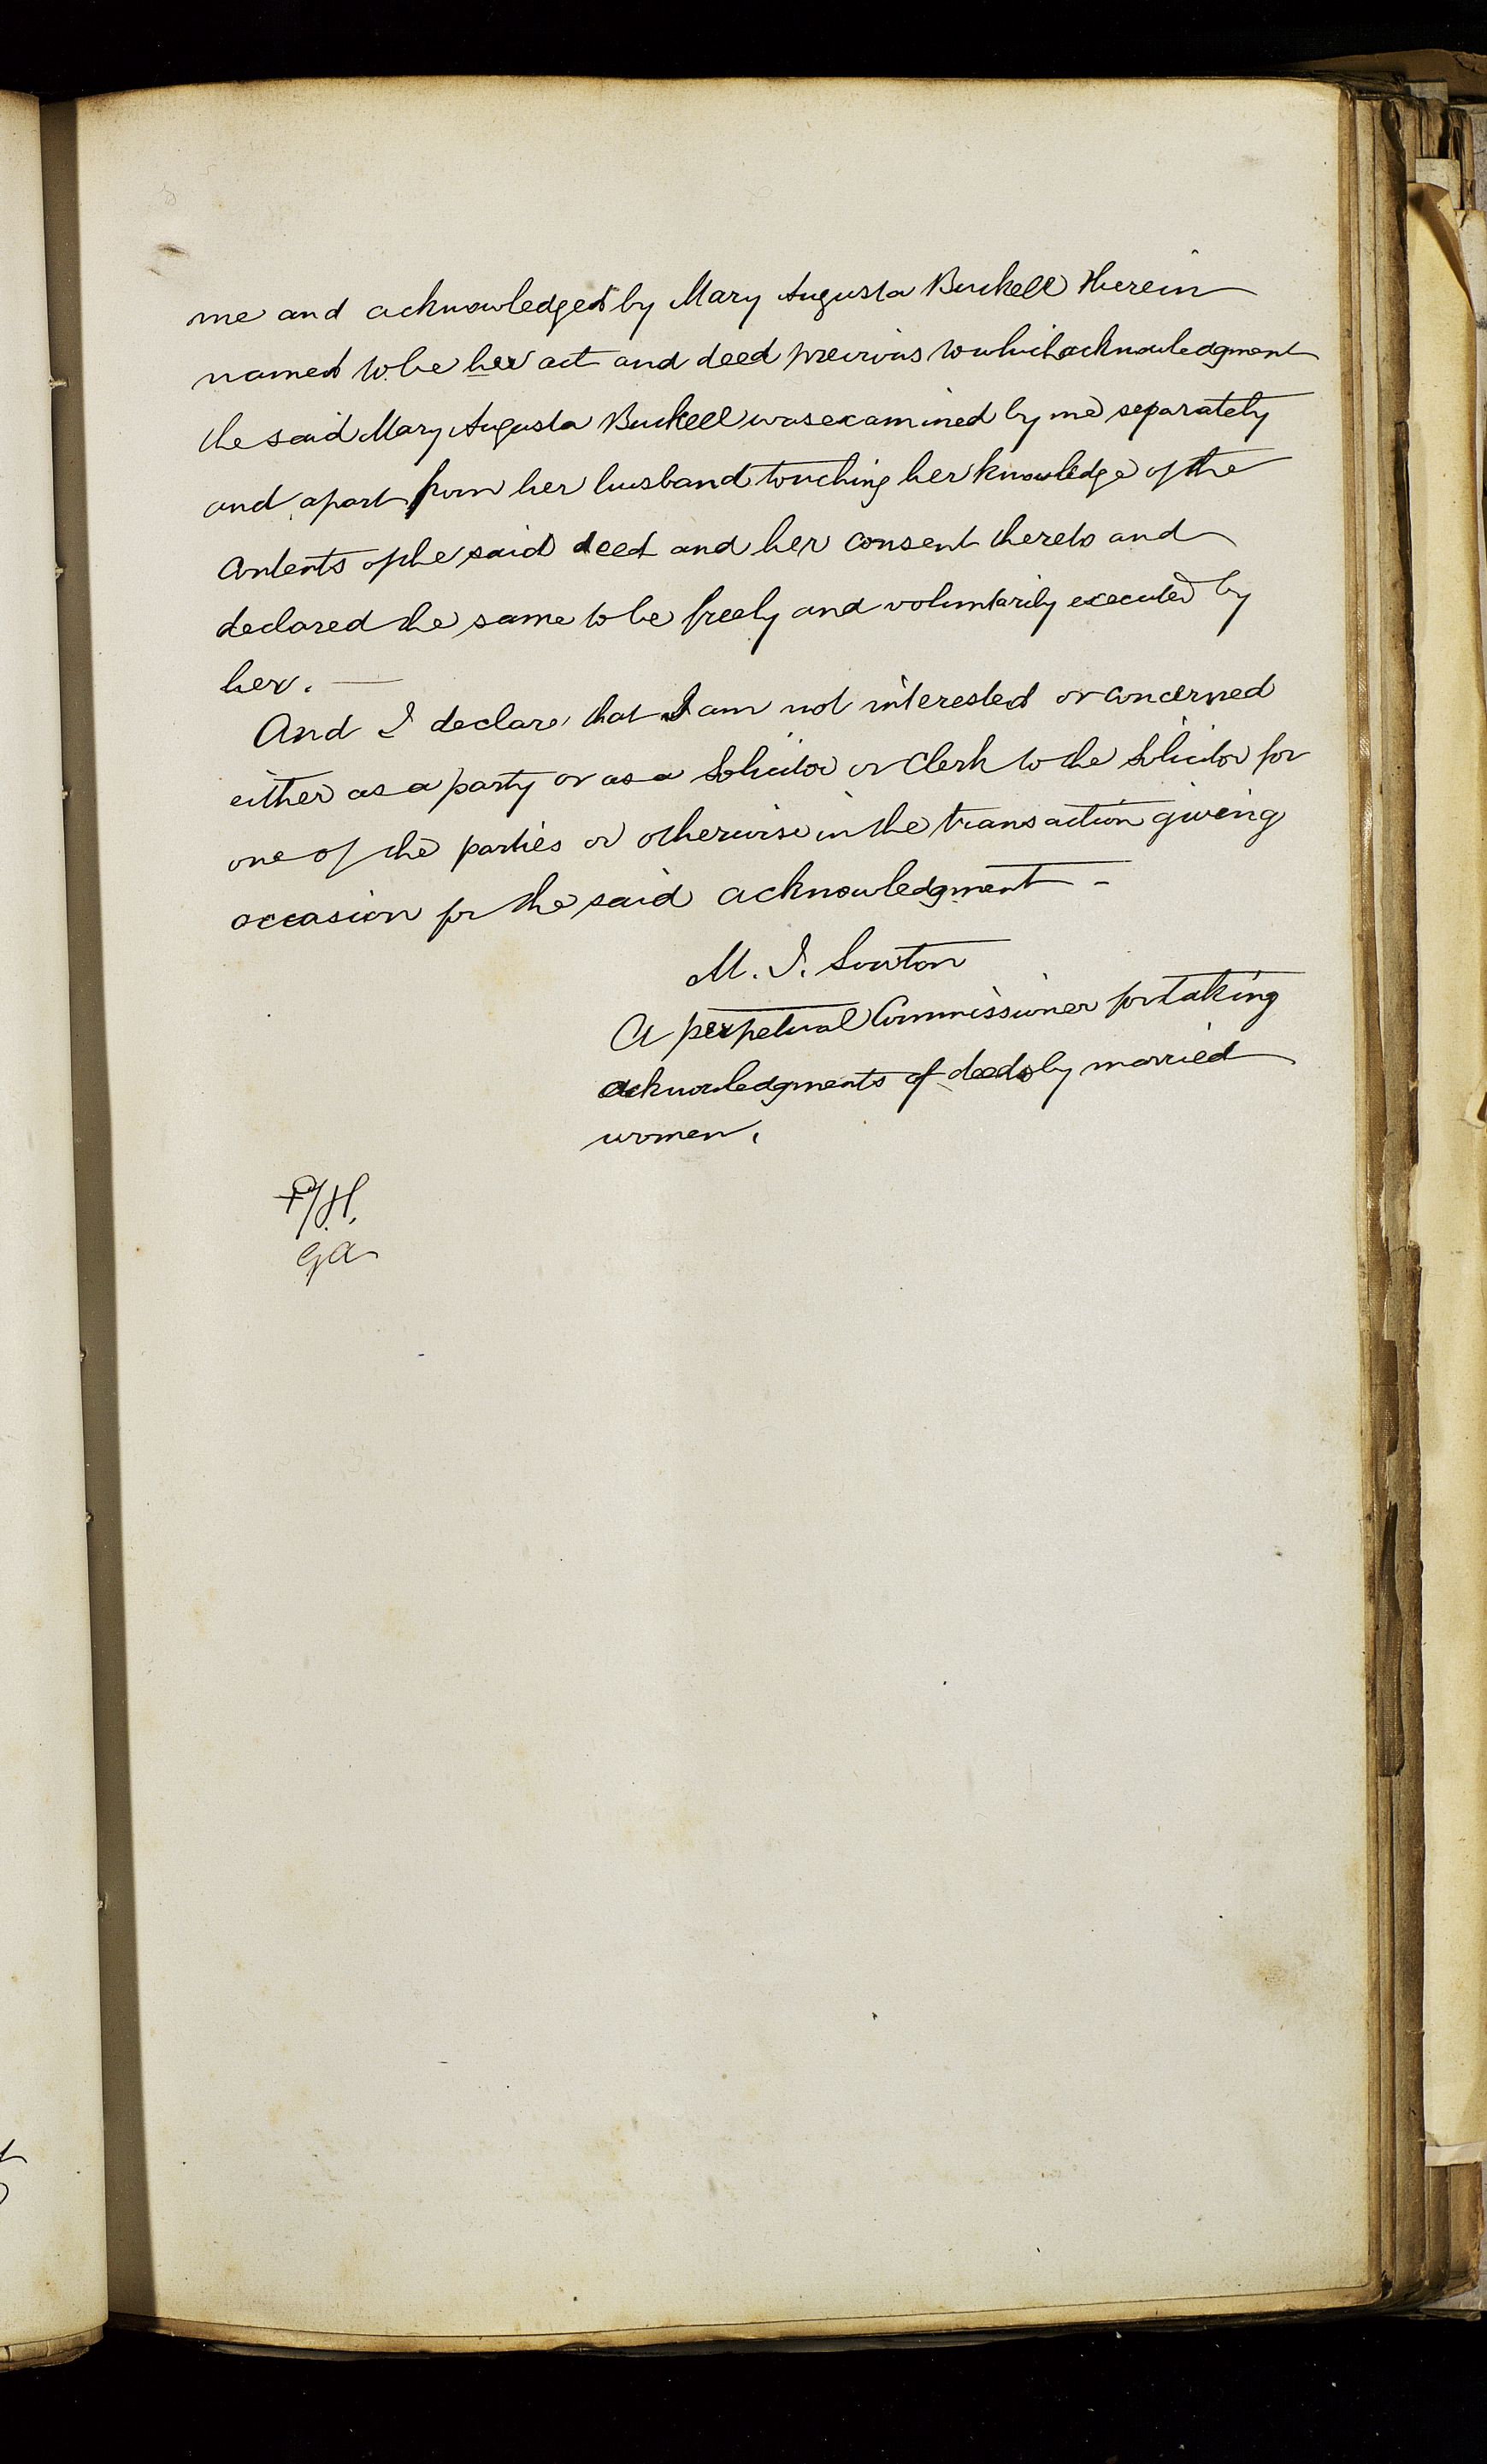 me and acknowledged by Mary Augusta Buckell therein
named to be her act and deed previous to which acknowledgment
the said Mary Augusta Buckell was examined by me separately
and apart from her husband touching her knowledge of the
contents of the said deed and her consent thereto and
declared the same to be freely and voluntarily executed by
her. —
And I declare that I am not interested or concerned
either as a party or as a Solicitor or Clerk to the Solicitor for
one of the parties or otherwise in the transaction giving
occasion for the said acknowledgment -
M. J. Sowton
A perpetual Commissioner for taking
acknowledgments of deeds by married
women.